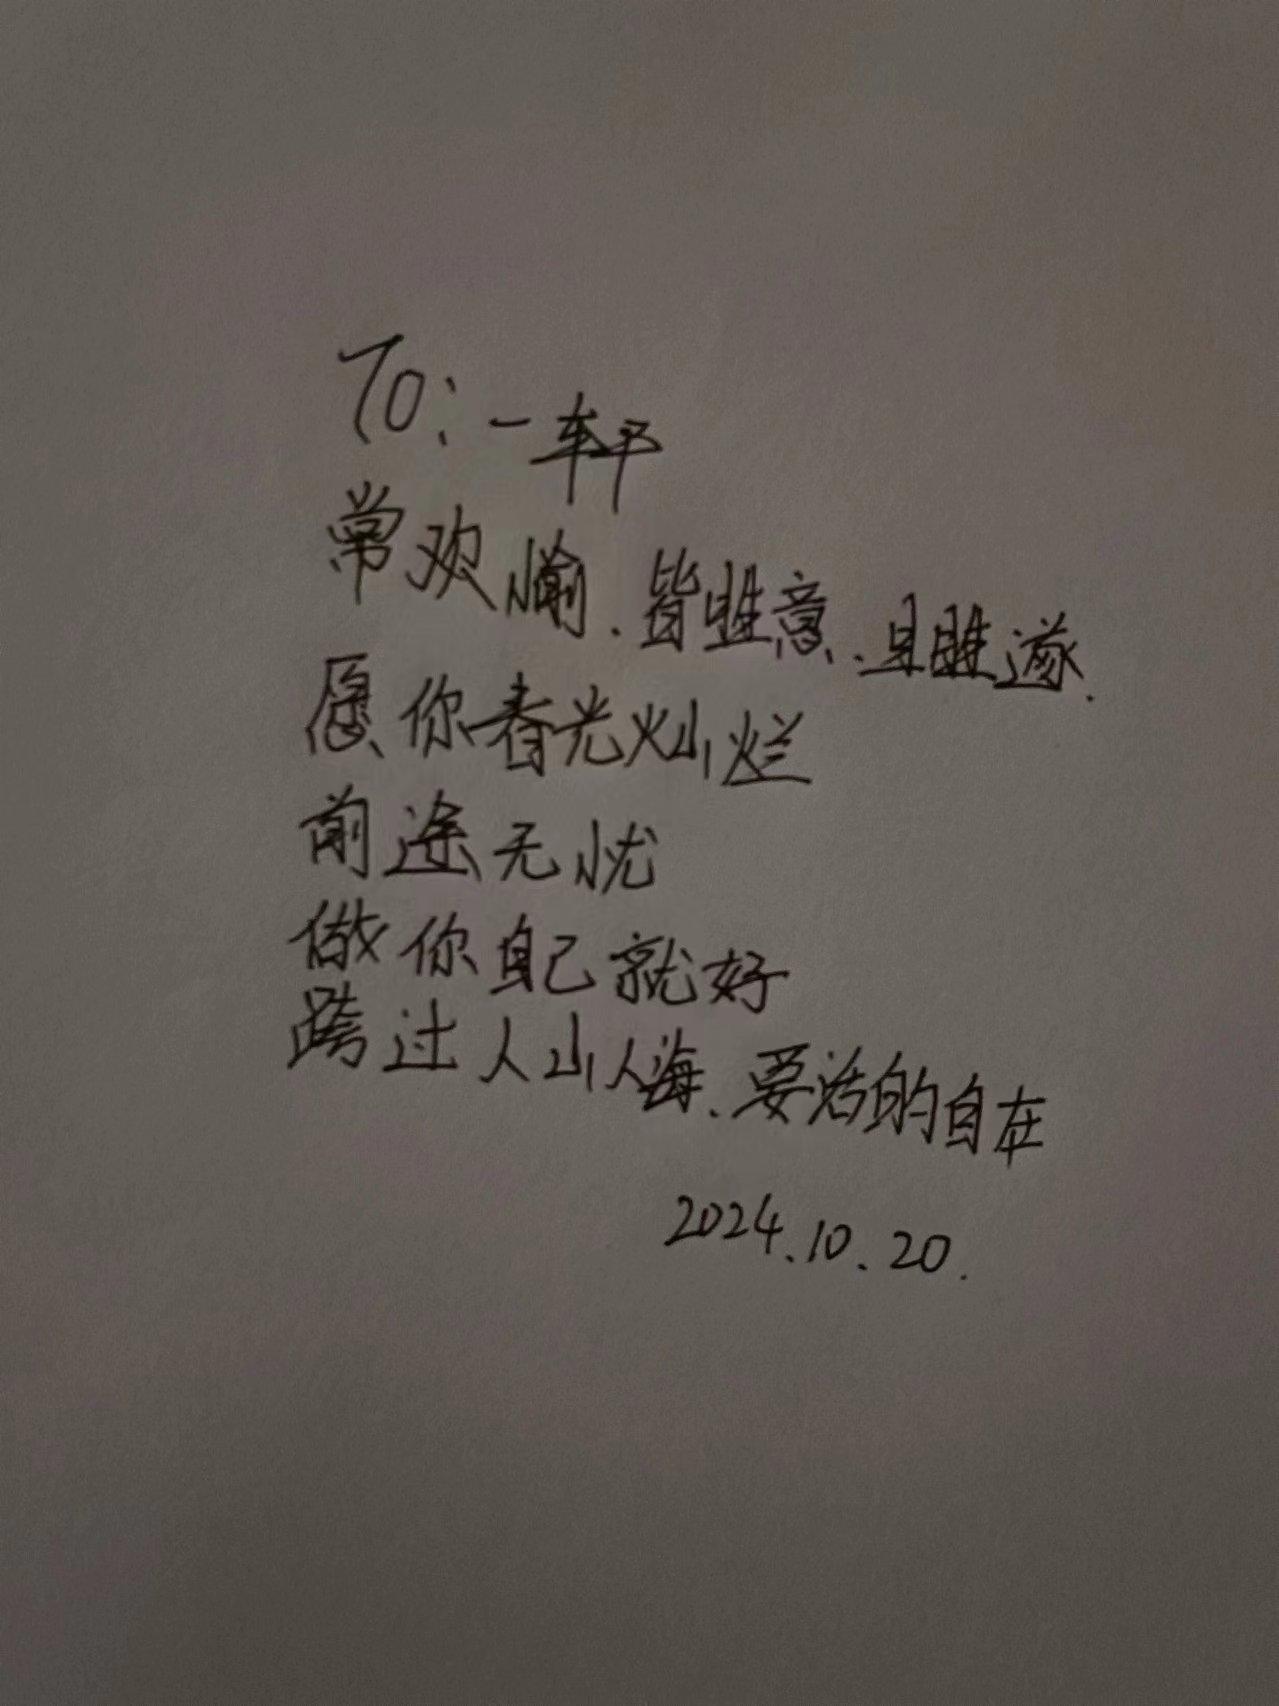 To:一轩
常欢愉.皆胜意.且胜遂.
愿你春光灿烂
前途无忧
做你自己就好
跨过人山人海、要活的自在
2024.10.20.